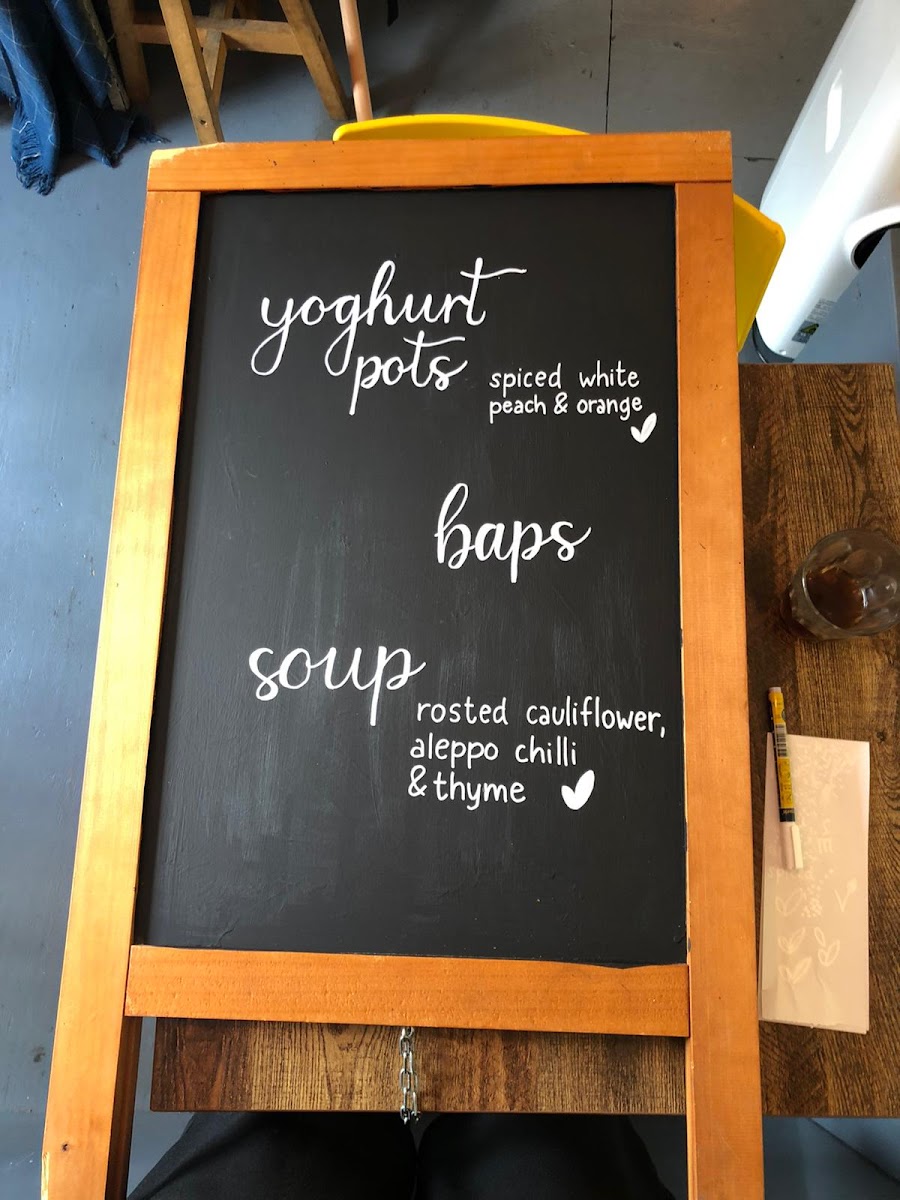 yoghurt
pots
spiced white
peach & orange
baps
soup
rosted cauliflower,
aleppo chilli
& thyme